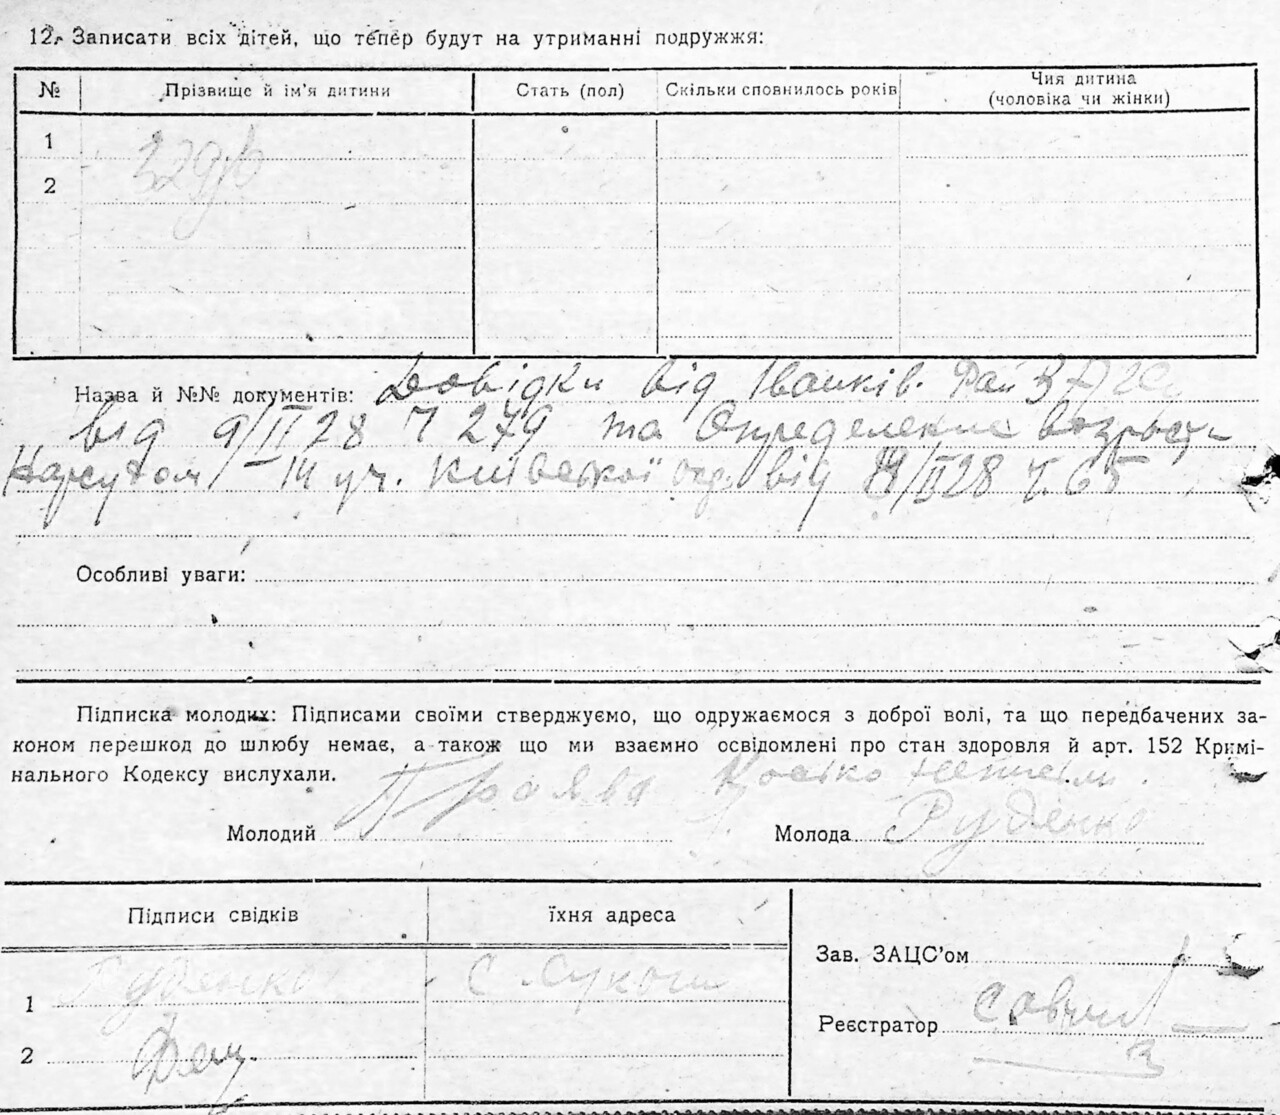 12. Записати всіх дітей, що тепер будут на утриманні подружжя:
№ Прізвище й ім'я дитини Стать (пол) Скільки сповнилось років Чия дитина
(чоловіка чи жінки)
1
2
Назва й №№ документів: Довідки від Іванків. Рай
від 9/II 28 Ч 279 та Определение возраста
Нарсудом 14 уч. Київської окр. від /II 28 ч. 65
Особливі уваги:
Підписка молодих: Підписами своїми стверджуємо, що одружаємося з доброї волі, та що передбачених за-
коном перешкод до шлюбу немає, а також що ми взаємно освідомлені про стан здоровля й арт. 152 Кримі-
нального Кодексу вислухали.
Молодий Молода Руденко
Підписи свідків їхня адреса
Зав. ЗАЦС'ом
1 Руденко с
Реєстратор
2